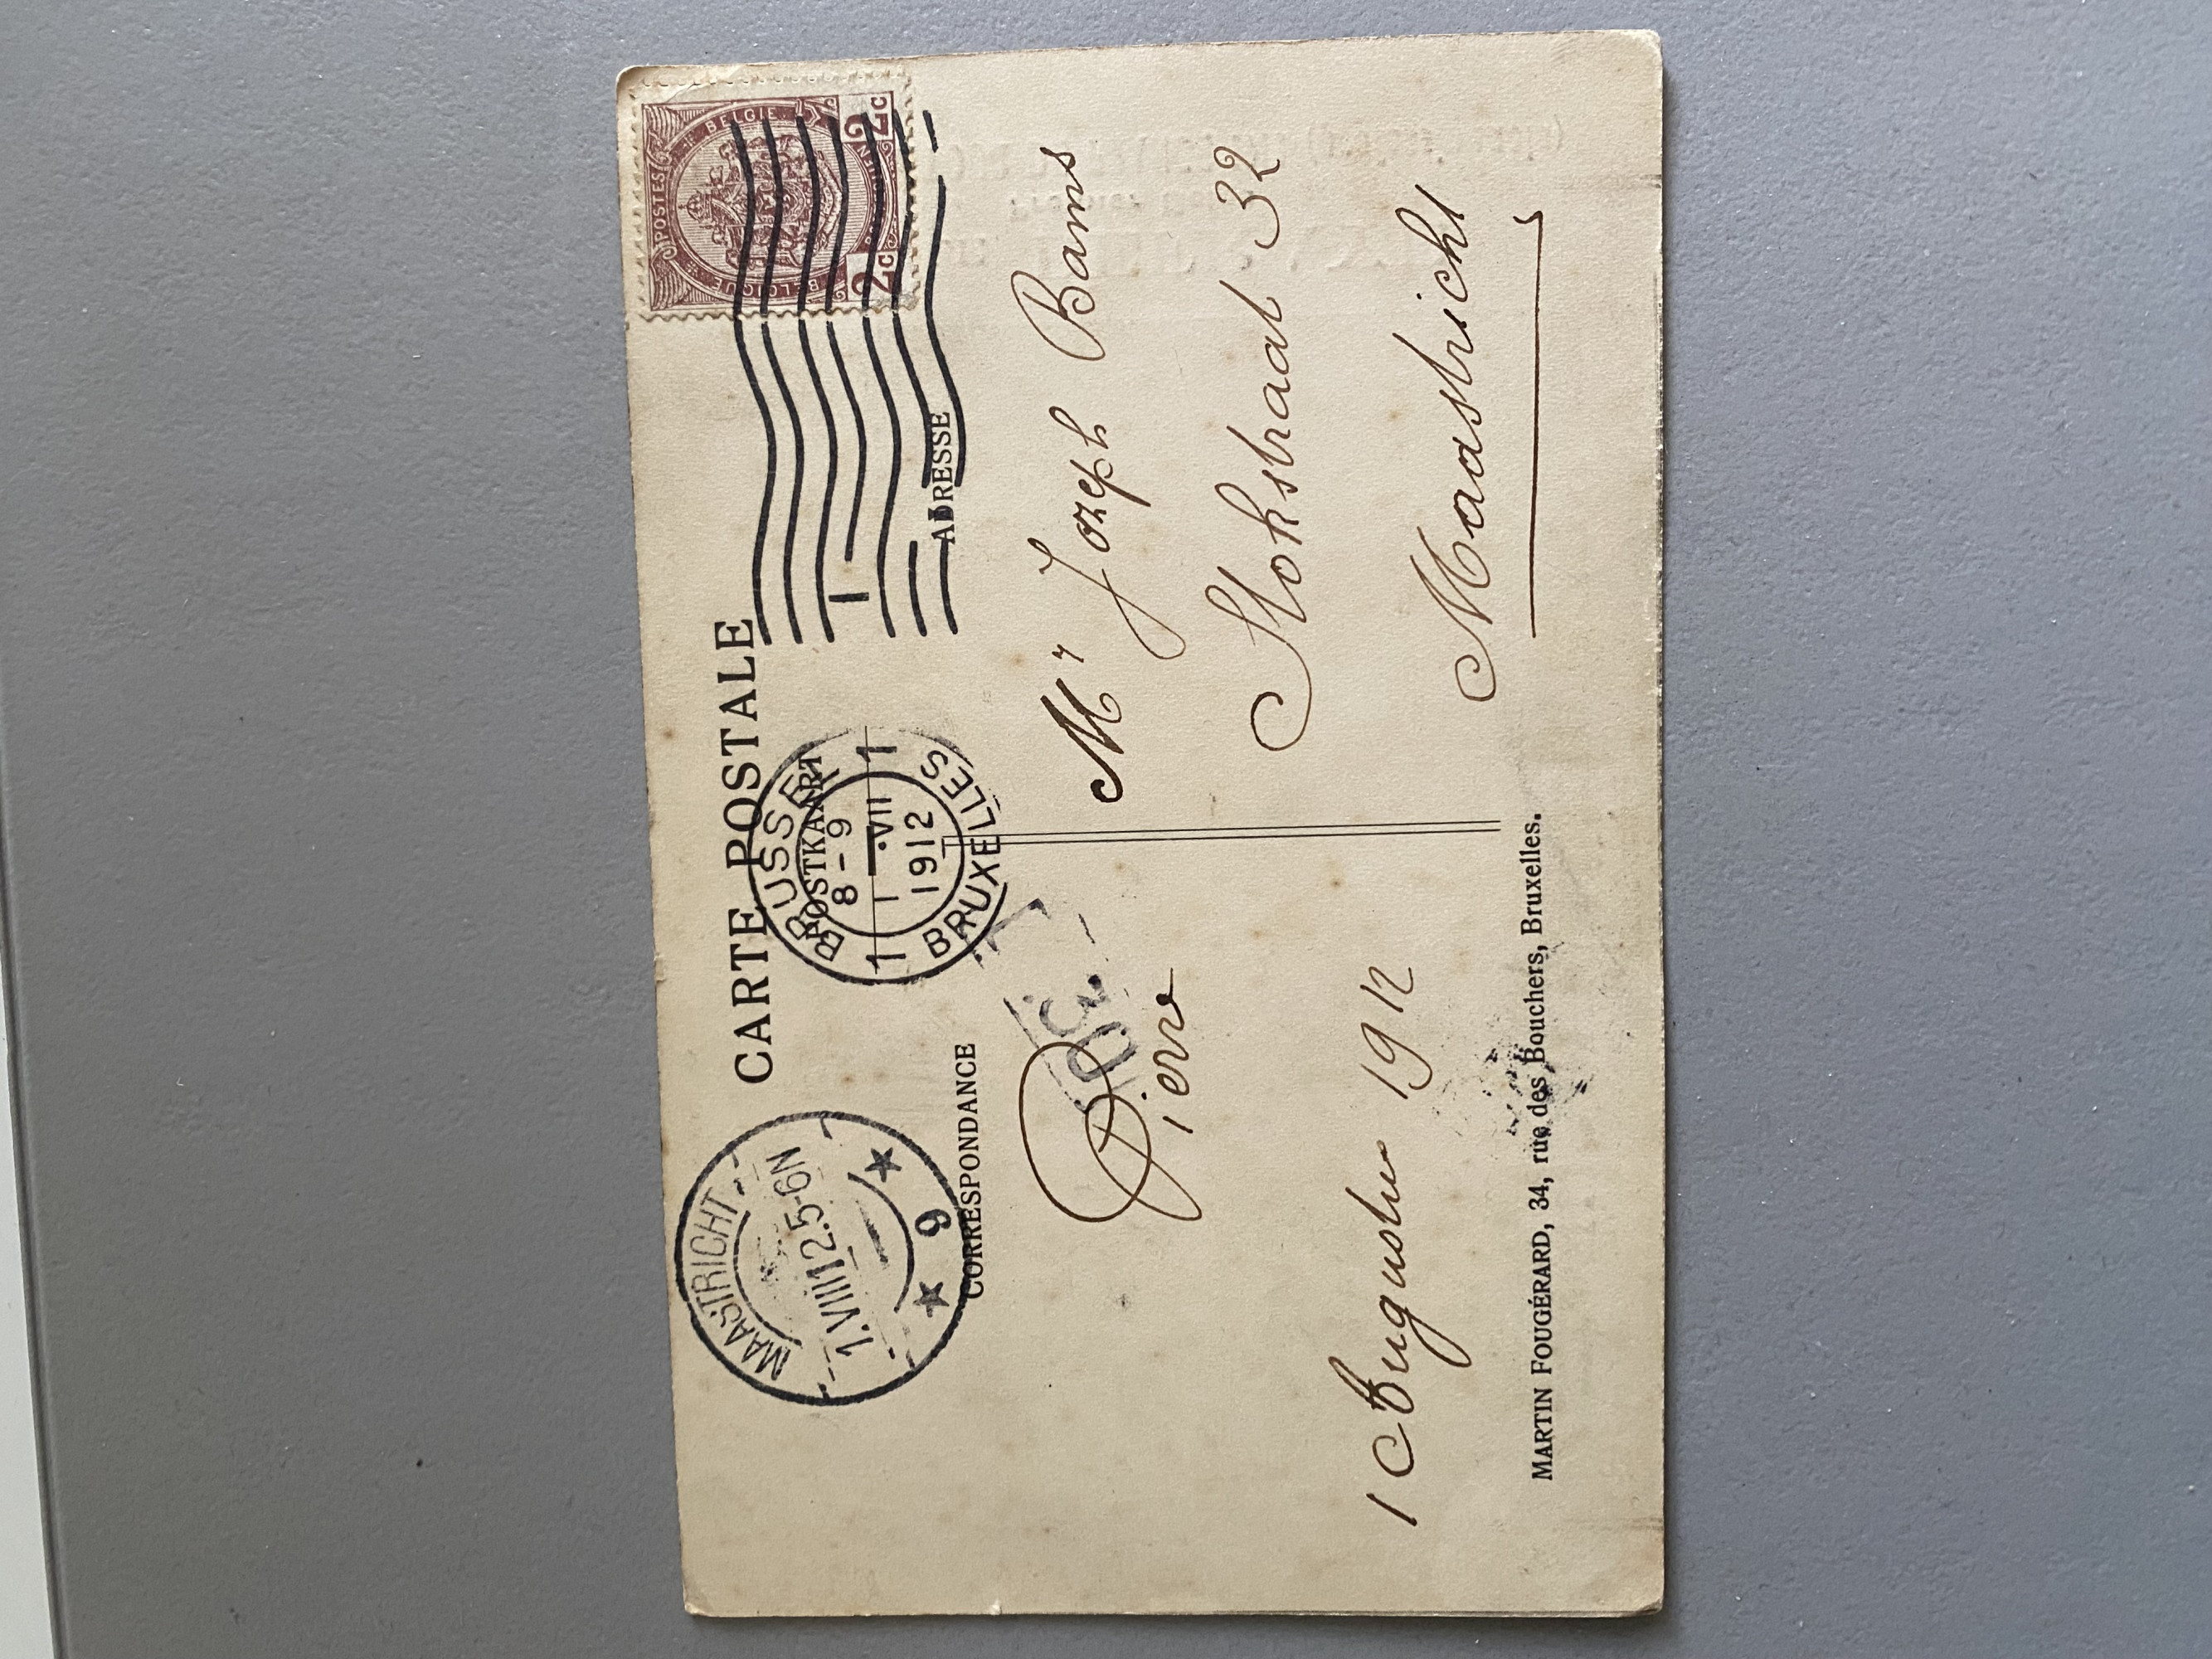 CARTE POSTALE
POSTKAART
POSTES
BELGIQUE
BELGIE
2c 2c
BRUSSEL
8-9
1 1 VII 1
1912
BRUXELLES
MAASTRICHT
1.VIII12.5-6N
9
CORRESPONDANCE
Pierre
1 Augustus 1912
ADRESSE
Mr Joseph Bams
Stokstraat 32
Maastricht
MARTIN FOUGÉRARD, 34, rue des Bouchers, Bruxelles.